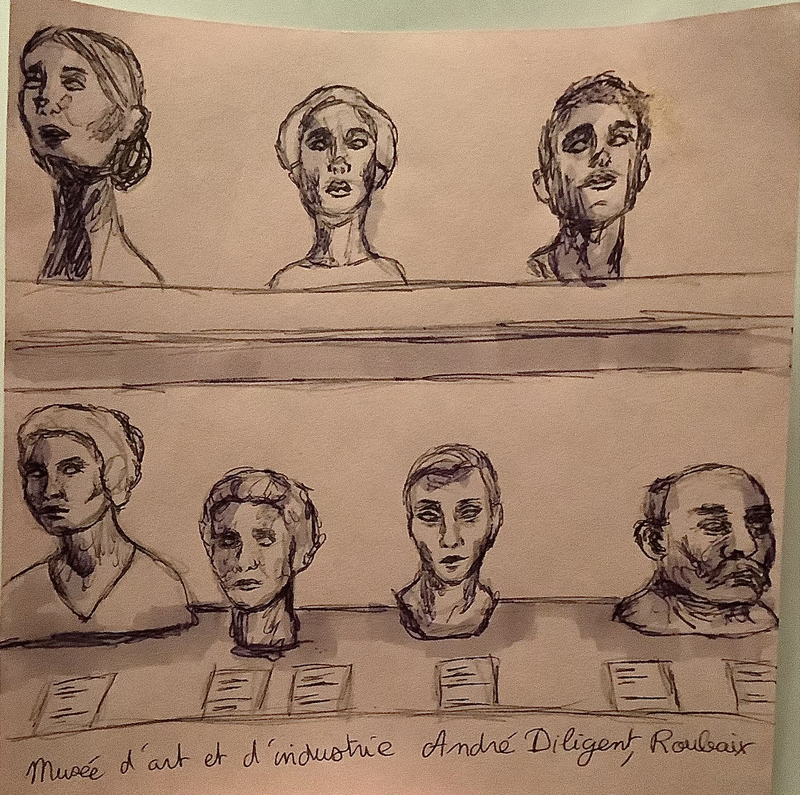 Musée d'art et d'industrie André Diligent, Roubaix